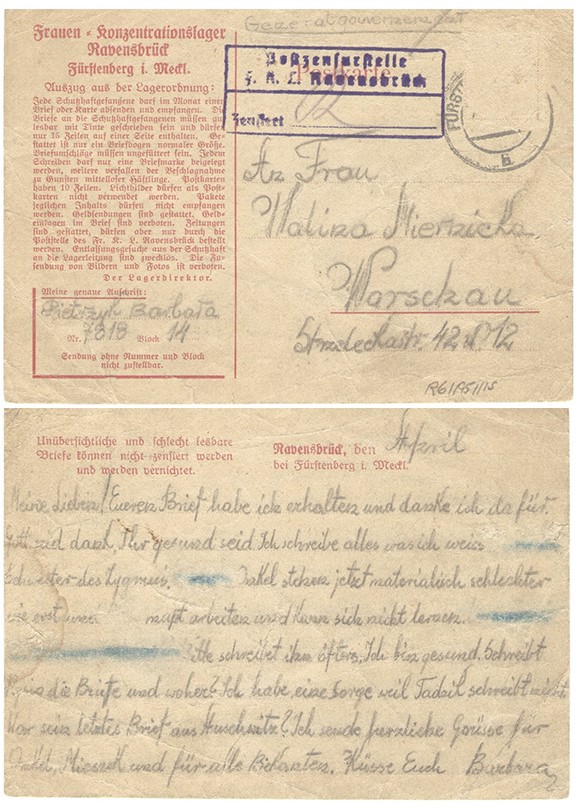 Generalgouvernement
Frauen-Konzentrationslager
Ravensbrück
Fürstenberg i. Meckl.
Auszug aus der Lagerordnung:
Jede Schutzhaftgefangene darf im Monat einen
Brief oder Karte absenden und empfangen. Die
Briefe an die Schutzhaftgefangenen müssen gut
lesbar mit Tinte geschrieben sein und dürfen
nur 15 Zeilen auf einer Seite enthalten. Ge-
stattet ist nur ein Briefbogen normaler Größe.
Briefumschläge müssen ungefüttert sein. Jedem
Schreiben darf nur eine Briefmarke beigelegt
werden, weitere verfallen der Beschlagnahme
zu Gunsten mittelloser Häftlinge. Postkarten
haben 10 Zeilen. Lichtbilder dürfen als Post-
karten nicht verwendet werden. Pakete
jeglichen Inhalts dürfen nicht empfangen
werden. Geldsendungen sind gestattet. Geld-
einlagen im Brief sind verboten. Zeitungen
sind gestattet, dürfen aber nur durch die
Poststelle des Fr. K. L. Ravensbrück bestellt
werden. Entlassungsgesuche aus der Schutzhaft
an die Lagerleitung sind zwecklos. Die Zu-
sendung von Bildern und Fotos ist verboten.
Der Lagerdirektor.
Meine genaue Anschrift:
Pietrzyk Barbara
Nr. 7818 Block 14
Sendung ohne Nummer und Block
nicht zustellbar.
Postkarte
Postzensurstelle
F. K. L. Ravensbrück
Zensiert
FÜRST
An Frau
Warschau
42
RG1/P51/115
Unübersichtliche und schlecht lesbare
Briefe können nicht zensiert werden
und werden vernichtet.
Ravensbrück, den April
bei Fürstenberg i. Meckl.
Meine Lieben! Eueren Brief habe ich erhalten und danke ich da für.
Gott seid dank, Ihr gesund seid. Ich schreibe alles was ich weiss
des Zygmuś Onkel stehen jetzt materialisch schlechter
wie erst und muß arbeiten und kann sich nicht lernen.
Bitte schreibet ihm öfters. Ich bin gesund. Schreibt
die Briefe und woher? Ich habe eine Sorge weil Tadzil schreibt nicht
War sein letztes Brief aus Auschwitz? Ich sende herzliche Grüsse für
Onkel, Mieszek und für alle Bekanten. Küsse Euch Barbara